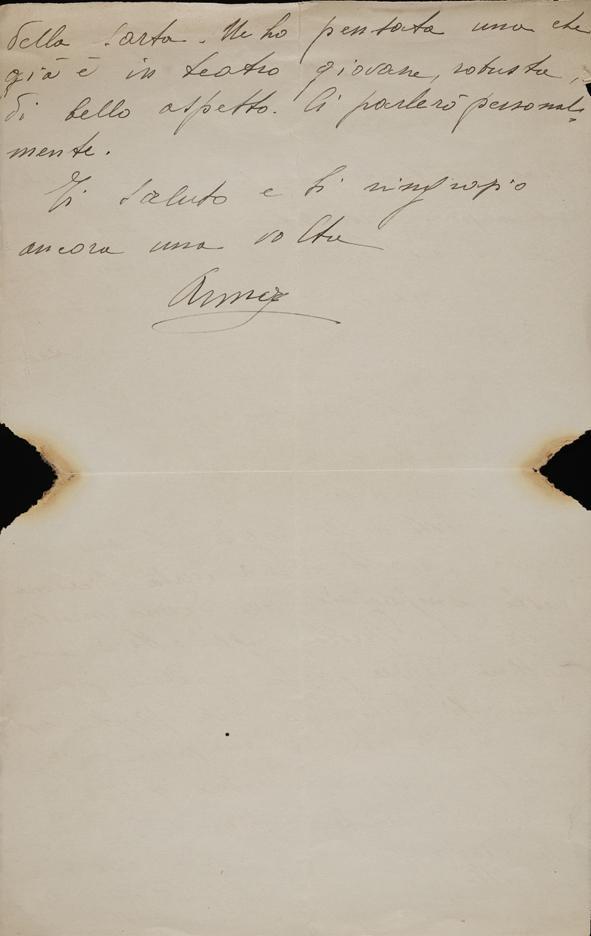 della sarta. Ne ho pensata una che
già è in teatro giovane, robusta,
di bello aspetto. Ti parlerò personal-
mente.
Ti saluto e ti ringrazio
ancora una volta